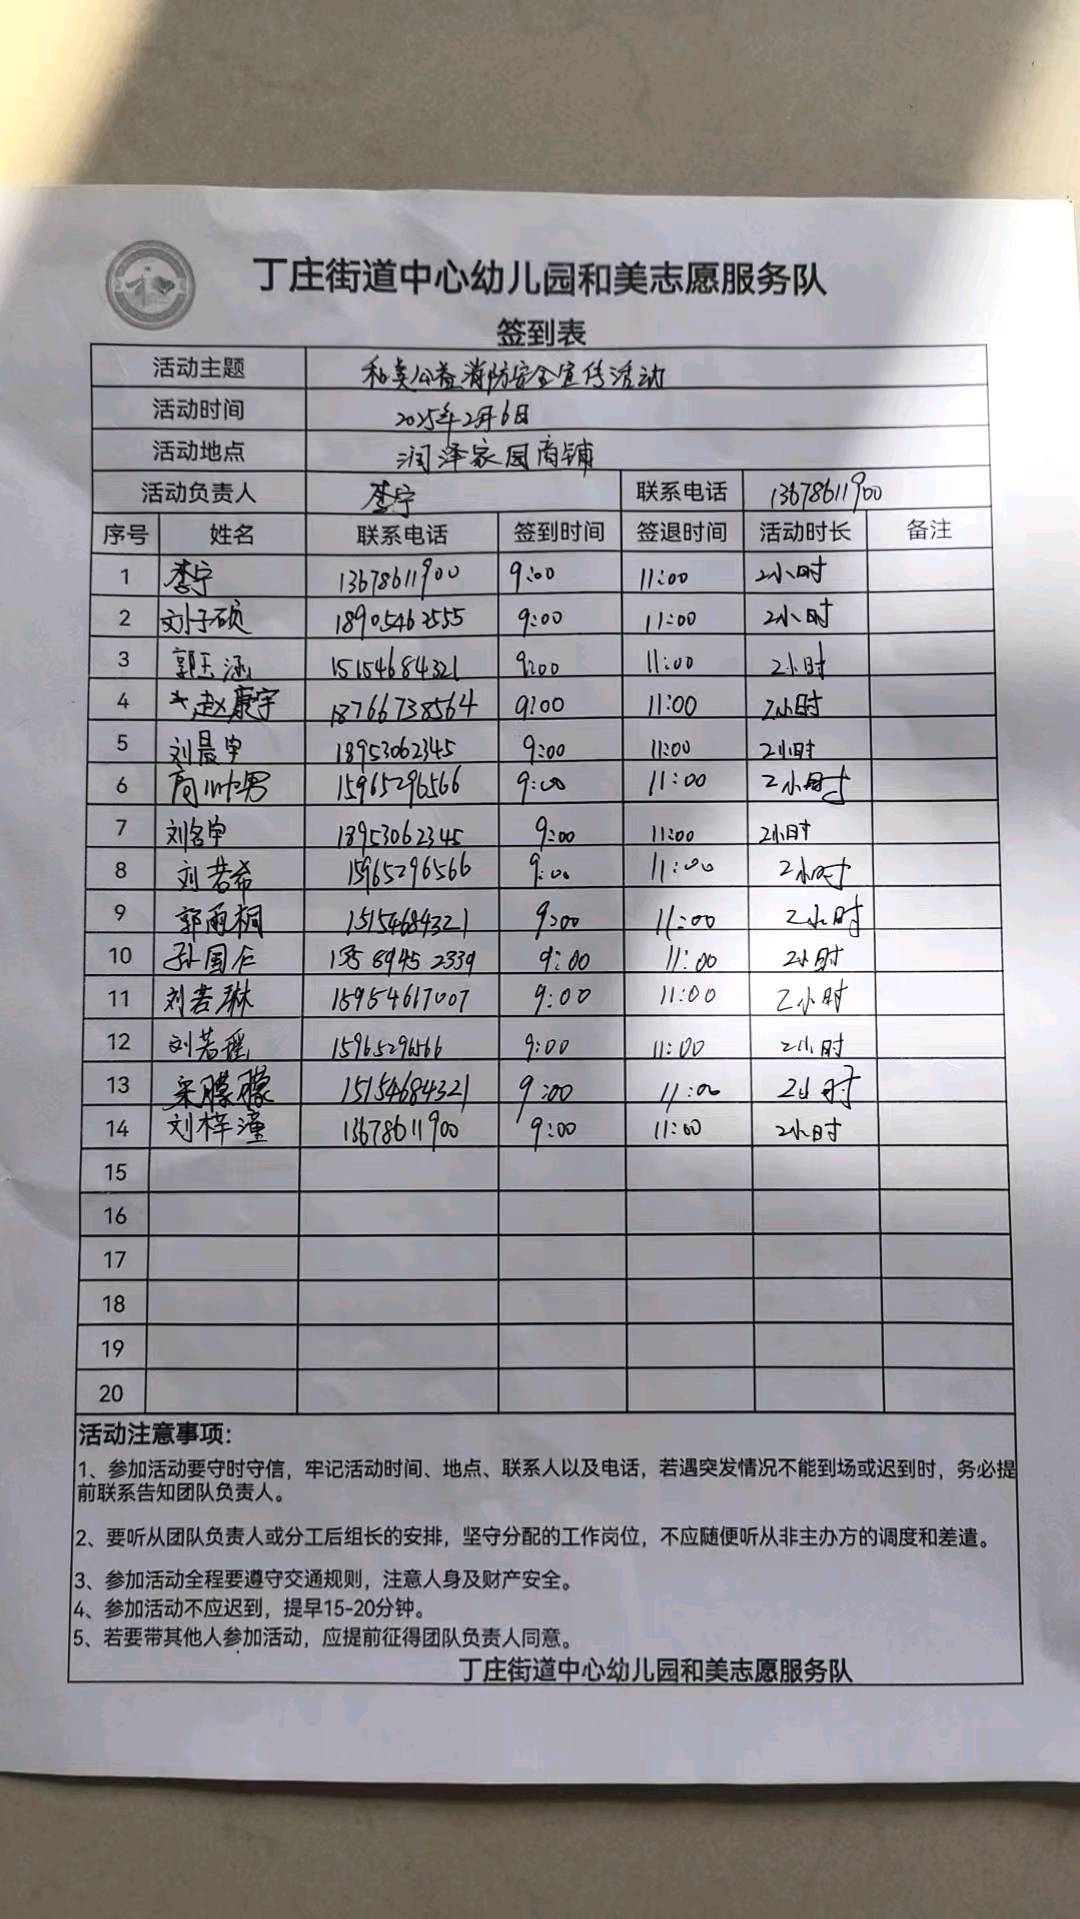 丁庄街道中心幼儿园和美志愿服务队
签到表
活动主题 和美公益消防安全宣传活动
活动时间 2025年2月6日
活动地点 润泽家园商铺
活动负责人 李宁 联系电话 13678611900
序号 姓名 联系电话 签到时间 签退时间 活动时长 备注
1 李宁 13678611900 9:00 11:00 2小时
2 刘子硕 18905462555 9:00 11:00 2小时
3 郭玉涵 15154684321 9:00 11:00 2小时
4 赵康宇 18766738564 9:00 11:00 2小时
5 刘晨宇 18953062345 9:00 11:00 2小时
6 15965296566 9:00 11:00 2小时
7 刘名宇 18953062345 9:00 11:00 2小时
8 刘若希 15965296566 9:00 11:00 2小时
9 郭雨桐 15154684321 9:00 11:00 2小时
10 孙国仁 9:00 11:00 2小时
11 刘若琳 15954617007 9:00 11:00 2小时
12 刘若瑶 15965296566 9:00 11:00 2小时
13 朦朦 15154684321 9:00 11:00 2小时
14 刘梓潼 13678611900 9:00 11:00 2小时
15
16
17
18
19
20
活动注意事项:
1、参加活动要守时守信，牢记活动时间、地点、联系人以及电话，若遇突发情况不能到场或迟到时，务必提
前联系告知团队负责人。
2、要听从团队负责人或分工后组长的安排，坚守分配的工作岗位，不应随便听从非主办方的调度和差遣。
3、参加活动全程要遵守交通规则，注意人身及财产安全。
4、参加活动不应迟到，提早15-20分钟。
5、若要带其他人参加活动，应提前征得团队负责人同意。
丁庄街道中心幼儿园和美志愿服务队